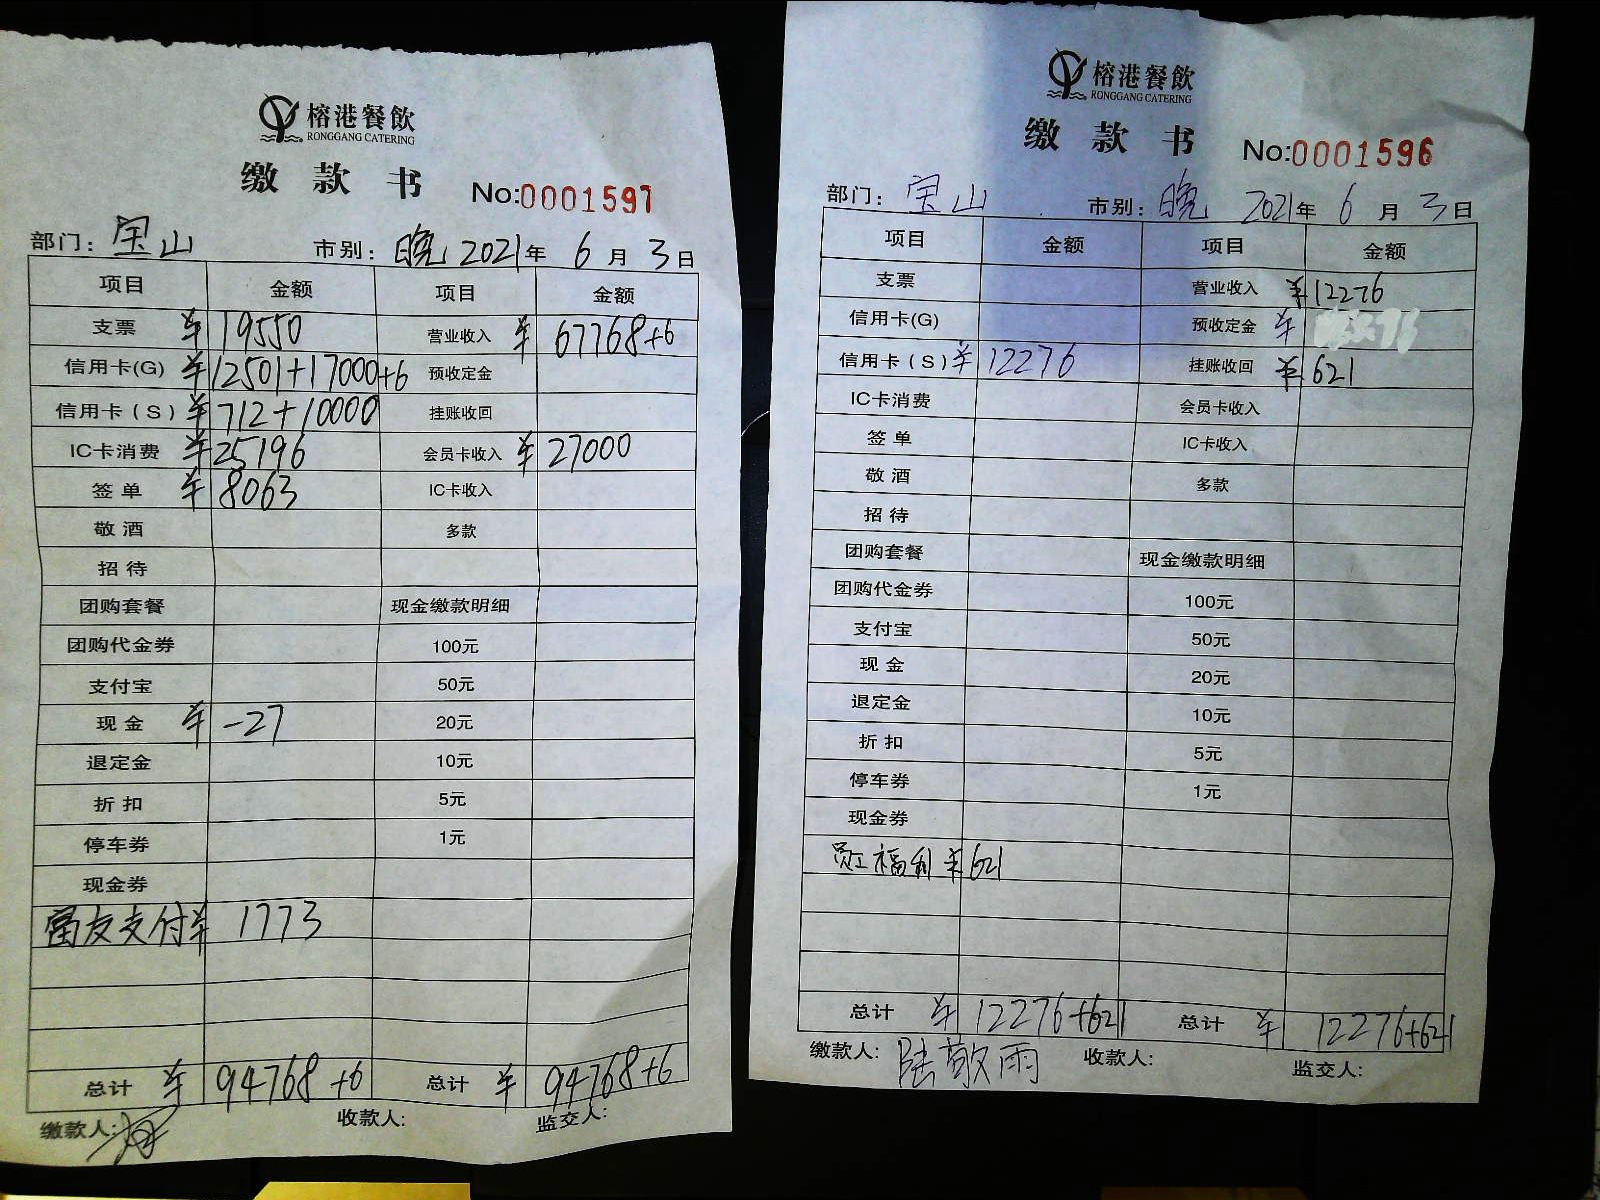 榕港餐飲
RONGGANG CATERING
缴款书 No:0001597
部门: 宝山 市别: 晚 2021年 6月 3日
项目 金额 项目 金额
支票 ¥19550 营业收入 ¥67768+6
信用卡(G) ¥12501+17000+6 预收定金
信用卡(S) ¥712+10000 挂账收回
IC卡消费 ¥25196 会员卡收入 ¥27000
签单 ¥8063 IC卡收入
敬酒 多款
招待
团购套餐 现金缴款明细
团购代金券 100元
支付宝 50元
现金 ¥-27 20元
退定金 10元
折扣 5元
停车券 1元
现金券
富友支付¥ 1773
总计 ¥94768+6 总计 ¥94768+6
缴款人: 收款人: 监交人:
榕港餐飲
RONGGANG CATERING
缴款书 No:0001596
部门: 宝山 市别: 晚 2021年 6月 3日
项目 金额 项目 金额
支票 营业收入 ¥12276
信用卡(G) 预收定金 ¥
信用卡(S) ¥12276 挂账收回 ¥621
IC卡消费 会员卡收入
签单 IC卡收入
敬酒 多款
招待
团购套餐 现金缴款明细
团购代金券 100元
支付宝 50元
现金 20元
退定金 10元
折扣 5元
停车券 1元
现金券
员工福利¥621
总计 ¥12276+621 总计 ¥12276+621
缴款人: 陆敬雨 收款人: 监交人: